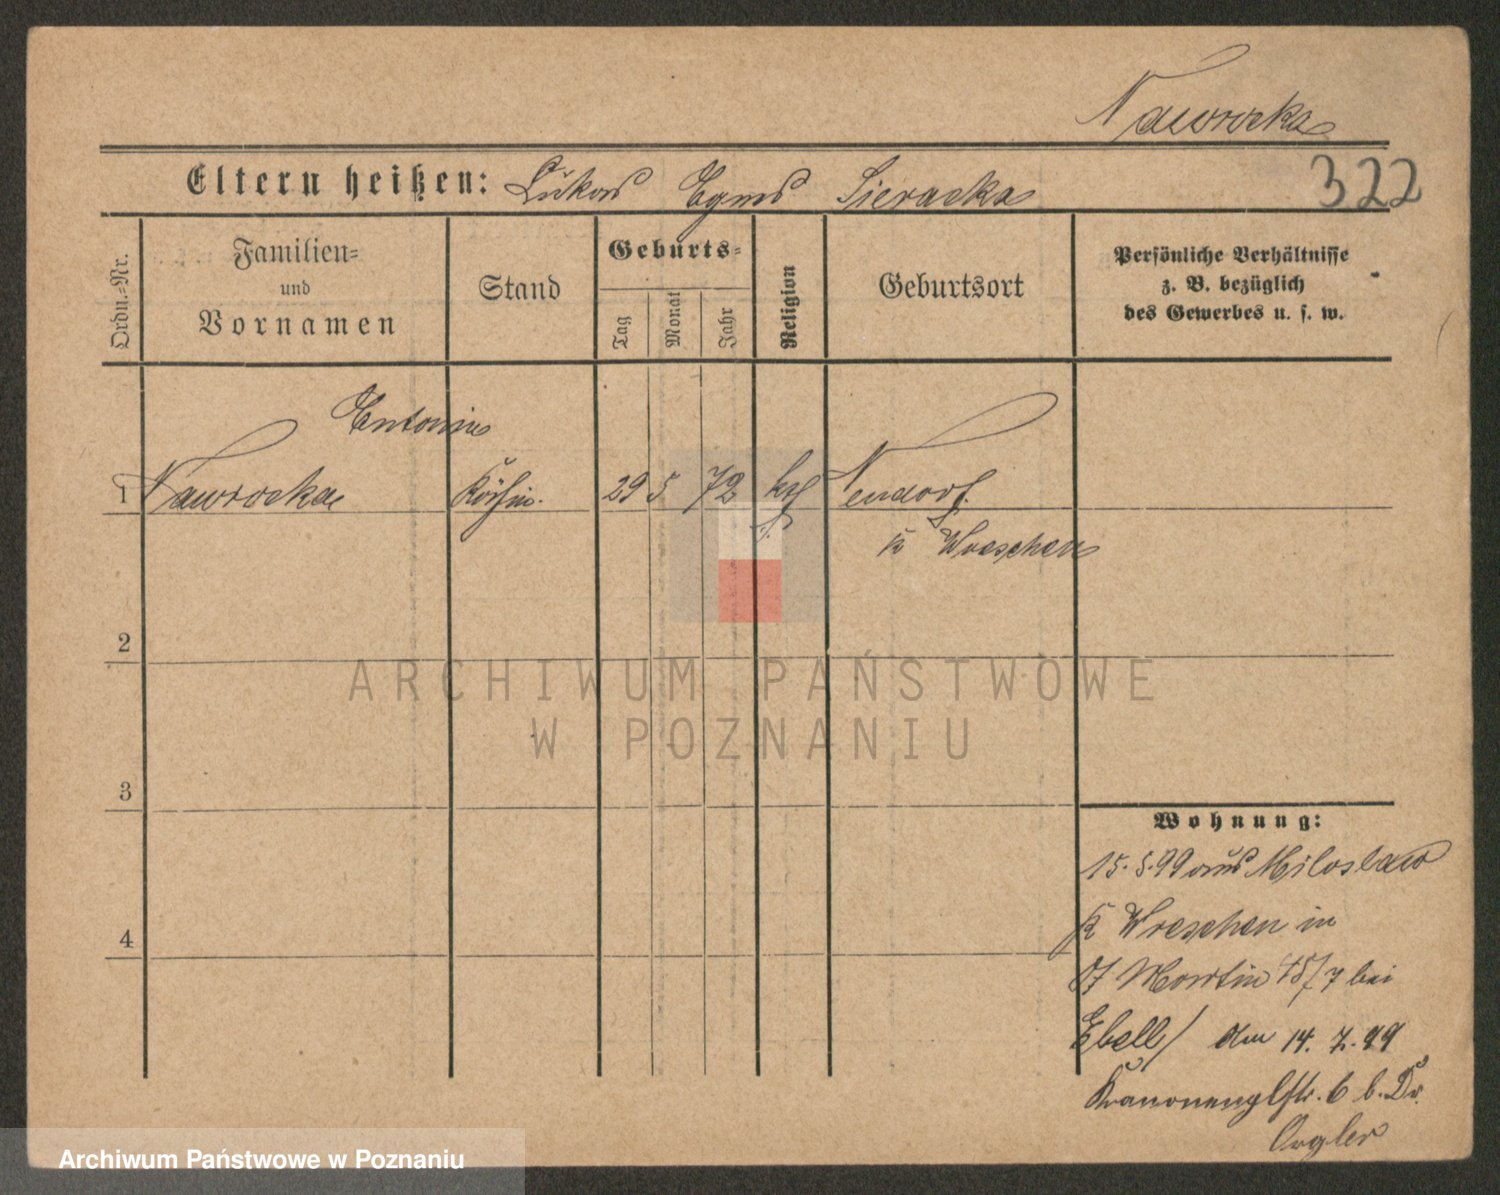 Nawrocka
Eltern heißen: Lukas Agnes Sieracka 322
Ordn.-Nr.
Familien-
und
Vornamen
Stand
Geburts-
Tag
Monat
Jahr
Religion
Geburtsort
Persönliche Verhältnisse
z. B. bezüglich
des Gewerbes u. s. w.
Antonie
1 Nawrocka Köchin. 29 5 72 kth Neudorf
K Wreschen
2
ARCHIWUM PAŃSTWOWE
W POZNANIU
3
Wohnung:
15. 5. 99 aus Miloslaw
K Wreschen in
4
St Martin 48/7 bei
Ebell / den 14. 7. 99
6 b. Dr.
Orgler
Archiwum Państwowe w Poznaniu